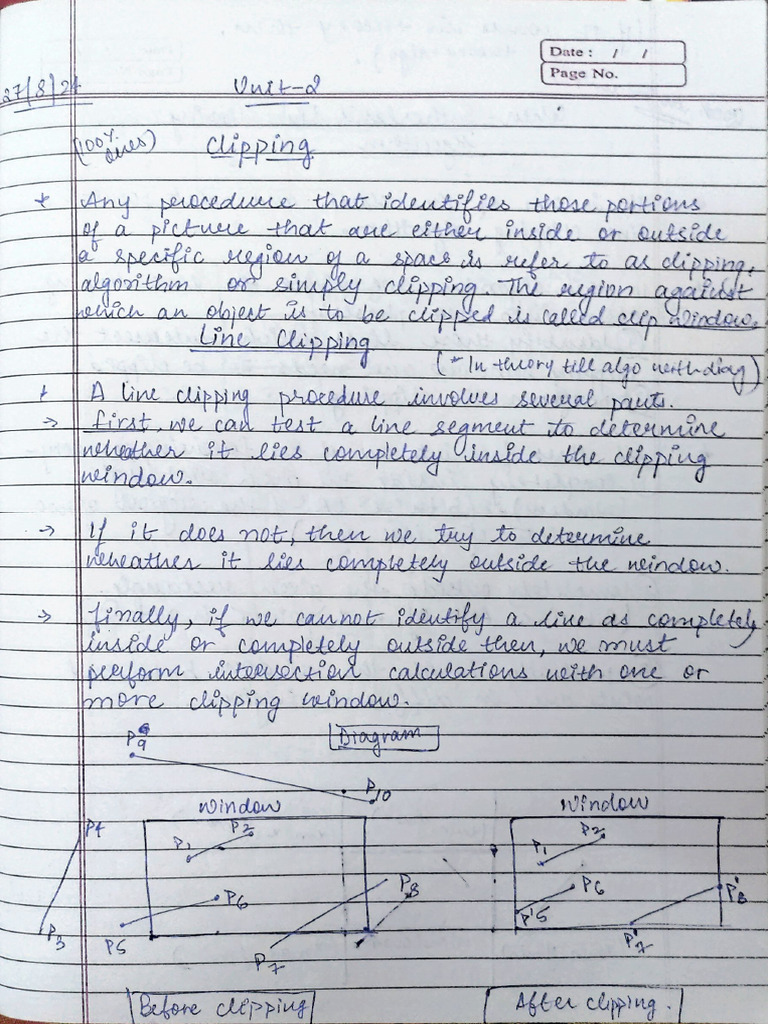 Date : / /
Page No.
27/8/24
Unit-2
(100% aues)
Clipping
* Any procedure that identifies those portions
of a picture that are either inside or outside
a specific region of a space is refer to as clipping,
algorithm or simply clipping. The region against
which an object is to be clipped is called clip window.
Line Clipping
(* In theory till algo with diag)
* A line clipping procedure involves several parts.
→ first, we can test a line segment to determine
wheather it lies completely inside the clipping
window.
→ If it does not, then we try to determine
wheather it lies completely outside the window.
→ finally, if we cannot identify a line as completely
inside or completely outside then, we must
perform intersection calculations with one or
more clipping window.
Diagram
P9
P10
window
window
P4
P1 P2
P1 P2
P6
P6
P8
P'8
P3
P5
P'5
P7
P'7
Before clipping
After clipping.